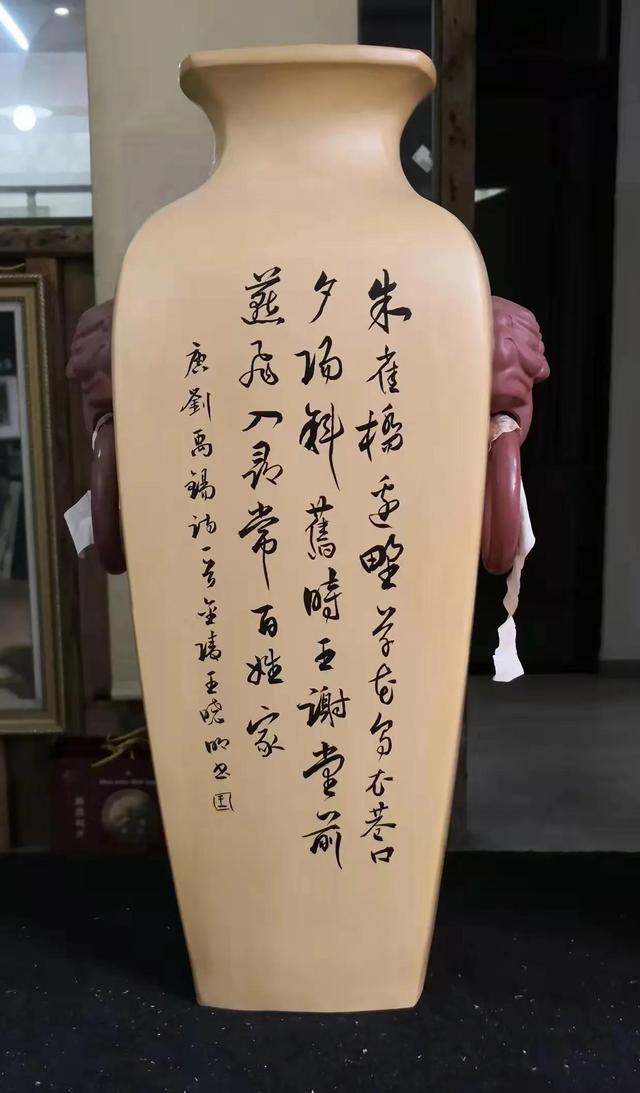 朱雀橋邊野草花烏衣巷口
夕陽斜舊時王謝堂前
燕飛入尋常百姓家
唐劉禹錫詩一首金陵王曉明書